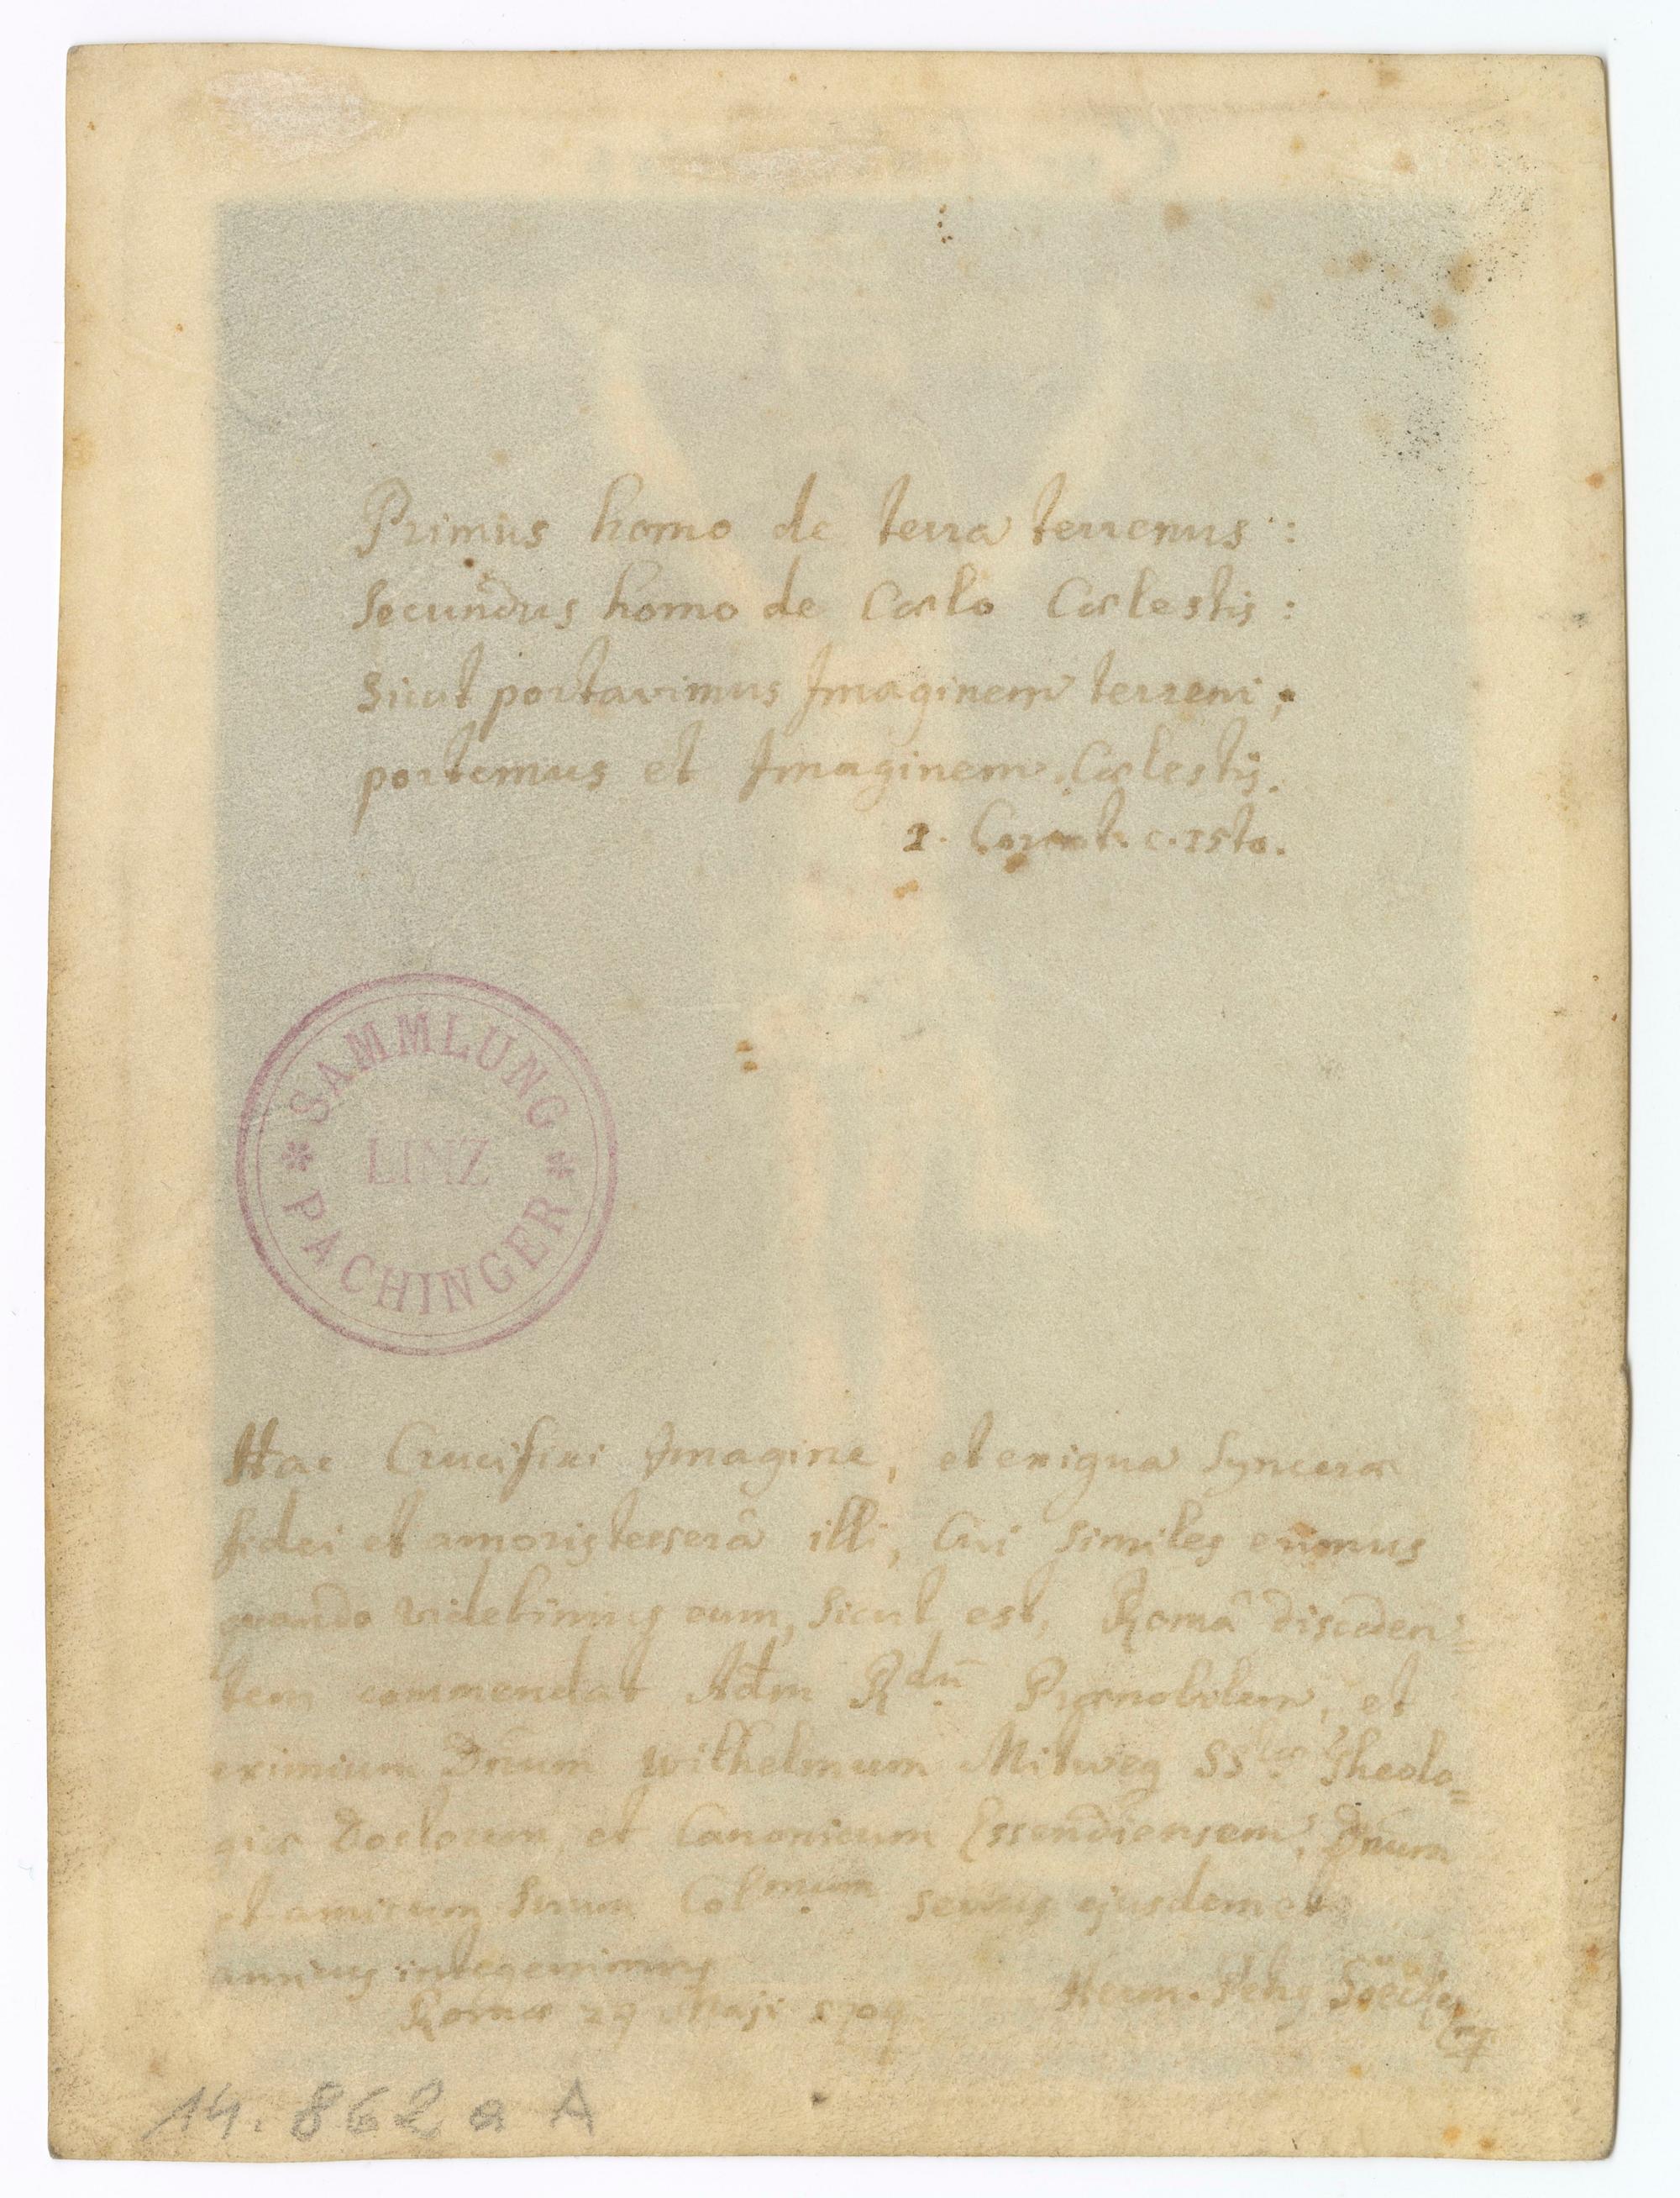 Primus homo de terra terrenus :
Secundus homo de Cælo Cælestis :
Sicut portavimus Imaginem terreni,
portemus et Imaginem Cælestis.
1. Corint. c. 15to.
SAMMLUNG
LINZ
PACHINGER
Hac Crucifixi Imagine, et exigua Synceræ
fidei et amoris tesserâ illi, Cui Similes erimus
quando videbimus eum, Sicut est, Româ disceden=
tem commendat Adm Rdn̄ Prænobilem, et
eximium Dnum Wilhelmum Mitweg SS. Theolo=
giæ Doctorem et Canonicum Essendiensem, Dnum
et amicum suum Colmum servus ejusdem et
amicus integerrimus
Romæ 29 Maji 1709
Herm.
14. 862 a A